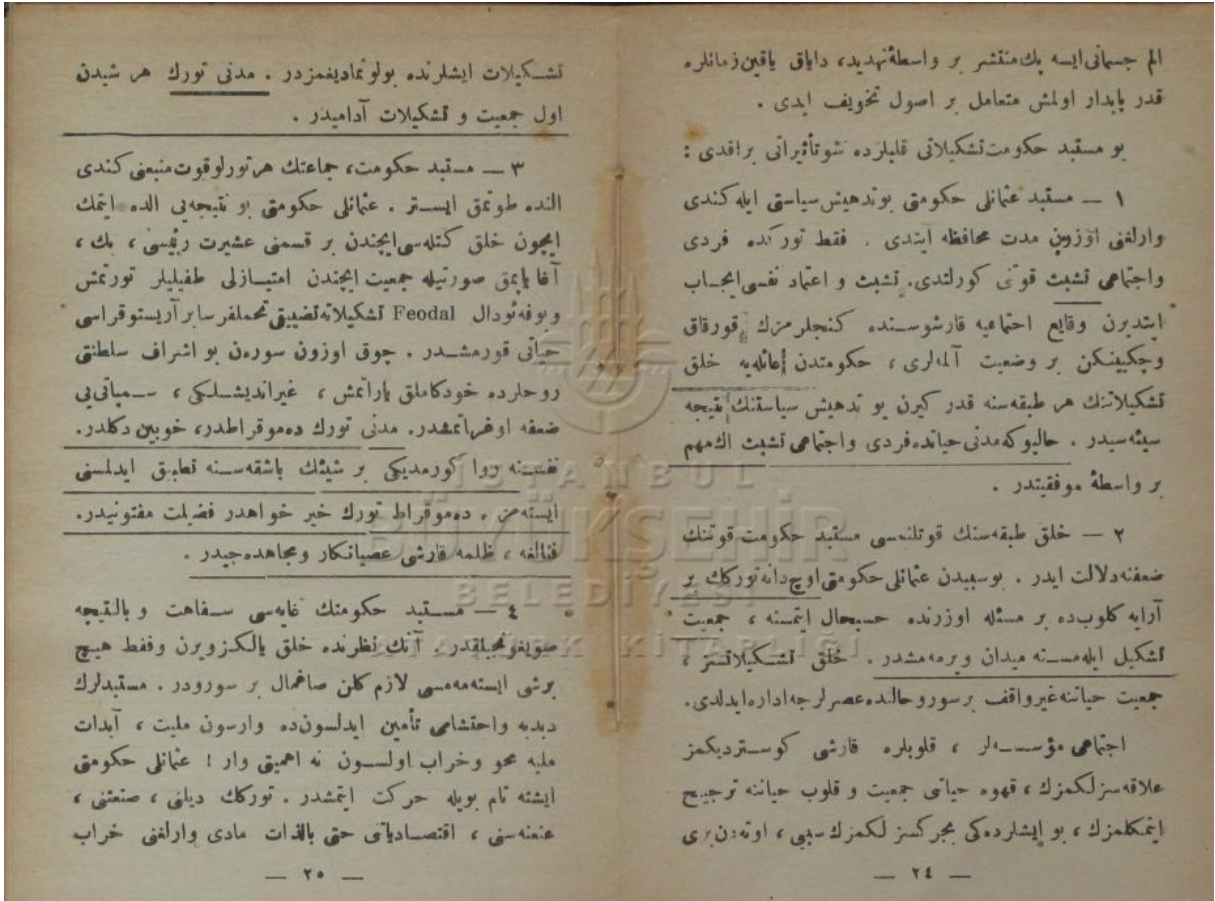 الم جسمانی ایسه پك منتشر بر واسطهٔ تهدید، دایاق یاقین زمانلره
قدر پایدار اولمش متعامل بر اصول تخویف ایدی .
بو مستبد حكومت تشكیلاتی قلبلرده شو تأثیراتی براقدی :
١ — مستبد عثمانلی حكومتی بو تدهیش سیاستی ایله كندی
وارلغنی اوزون مدت محافظه ایتدی . فقط توركده فردی
واجتماعی تشبث قوتنی كورلتدی. تشبث و اعتماد نفسی ایجاب
ایتدیرن وقایع اجتماعیه قارشوسنده كنجلرمزك قورقاق
وچكینكن بر وضعیت آلمه‌لری ، حكومتدن إعائله‌یه خلق
تشكیلاتنك هر طبقه‌سنه قدر كیرن بو تدهیش سیاستنك نتیجه
سیئه‌سیدر . حالبوكه مدنی حیاتده فردی واجتماعی تشبث اك مهم
بر واسطهٔ موفقیتدر .
٢ — خلق طبقه‌سنك قوتلنمسی مستبد حكومت قوتنك
ضعفنه دلالت ایدر . بو سببدن عثمانلی حكومتی اوچ دانه توركك بر
آرایه كلوب‌ده بر مسئله اوزرنده حسبحال ایتمسنه ، جمعیت
تشكیل ایله‌مسنه میدان ویرمه‌مشدر . خلق تشكیلاتسز ،
جمعیت حیاتنه غیرواقف بر سورو حالنده عصرلرجه اداره ایدلدی.
اجتماعی مؤسسه‌لر ، قلوبلره قارشی كوستردیكمز
علاقه‌سزلكمزك ، قهوه حیاتی جمعیت و قلوب حیاتنه ترجیح
ایتمكلمزك ، بو ایشلرده‌كی بجركسز لكمزك سببی ، اوته‌دن بری
— ٢٤ —
تشكیلات ایشلرنده بولونمادیغمزدر . مدنی تورك هر شیدن
اول جمعیت و تشكیلات آدامیدر .
٣ — مستبد حكومت، جماعتك هر تورلو قوت منبعنی كندی
النده طوتمق ایستر . عثمانلی حكومتی بو نتیجه‌یی الده ایتمك
ایچون خلق كتله‌سی ایچندن بر قسمنی عشیرت رئیسی ، بك ،
آغا یاپمق صورتیله جمعیت ایچندن امتیازلی طفیلیلر تورتمش
وبو فه‌ئودال Feodal تشكیلاته تضییقی تحملفرسا بر آریستوقراسی
حیاتی قورمشدر . چوق اوزون سورەن بو اشراف سلطنتی
روحلرده خودكاملق یاراتمش ، غیراندیشلكی ، سمپاتی‌یی
ضعفه اوغراتمشدر. مدنی تورك دەموقراطدر، خودبین دكلدر.
نفسنه روا كورمدیكی بر شیئك باشقه‌سنه تطبیق ایدلمسنی
ایسته‌مز . دەموقراط تورك خیر خواهدر فضیلت مفتونیدر.
فنالغه ، ظلمه قارشی عصیانكار ومجاهده‌جیدر .
٤ — مستبد حكومتك غایه‌سی سفاهت و بالنتیجه
صویغونجیلقدر . آنك نظرنده خلق یالكز ویرن وفقط هیچ
برشی ایسته‌مه‌مسی لازم كلن صاغمال بر سورودر. مستبدلرك
دبدبه واحتشامی تأمین ایدلسون‌ده وارسون ملیت ، آبدات
ملیه محو وخراب اولسون نه اهمیتی وار ! عثمانلی حكومتی
ایشته تام بویله حركت ایتمشدر . توركك دیلنی ، صنعتنی ،
عنعنه‌سنی ، اقتصادیاتنی حتی بالذات مادی وارلغنی خراب
— ٢٥ —
İSTANBUL
BÜYÜKŞEHİR
BELEDİYESİ
ATATÜRK KİTAPLIĞI